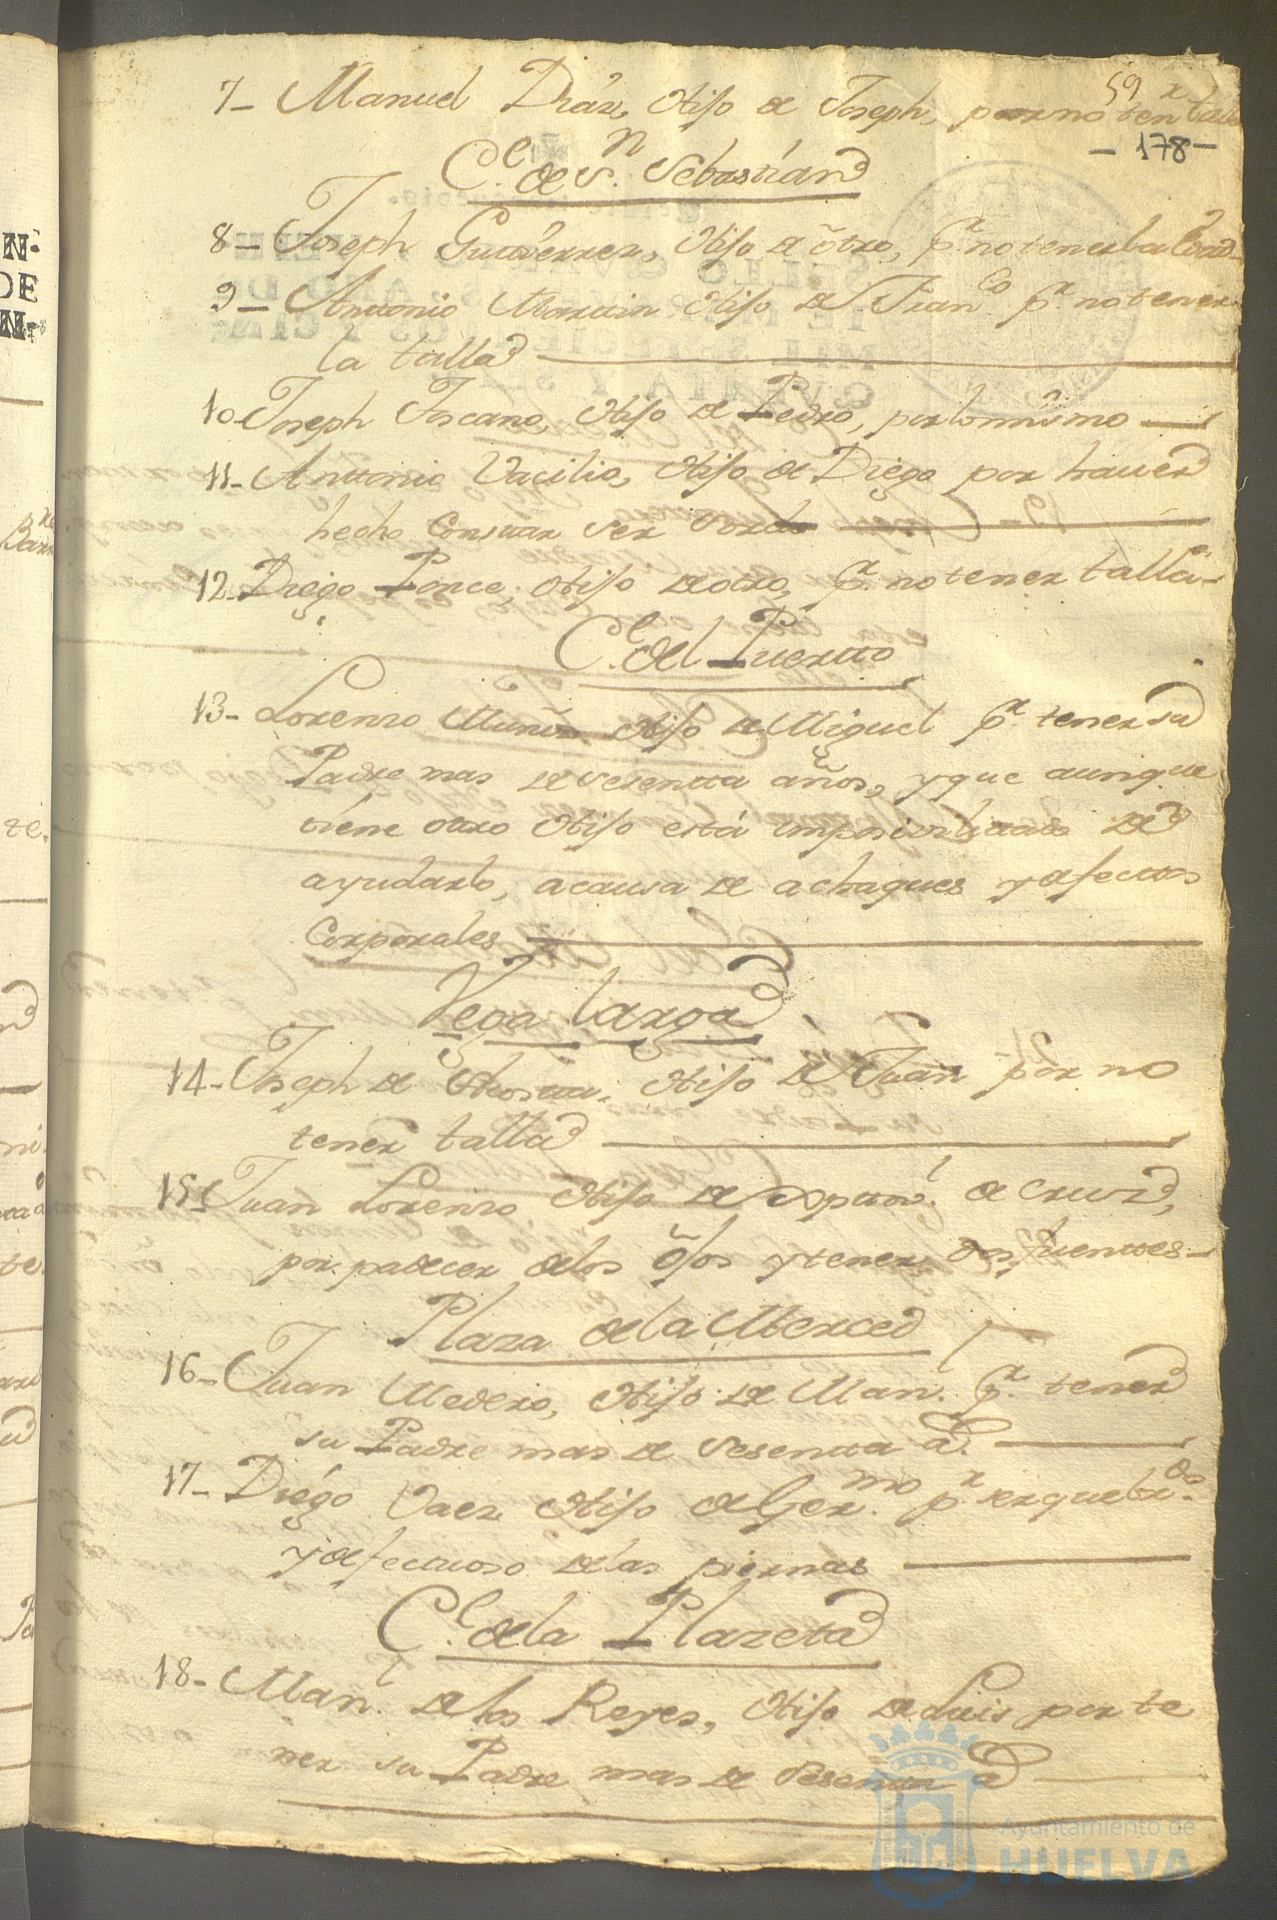 59
7- Manuel Diaz, Hijo de Joseph, por no ten.r talla
- 178 -
C.e de S.n Sebastian
8- Joseph Gutierrez, Hijo de otro, p.r no tener la edad
9- Antonio Martin Hijo de Fran.co p.r no tener
la talla
10- Joseph Toscano, Hijo de Pedro, por lo mismo
11- Anttonio Vacilio, Hijo de Diego por haver
hecho Constar ser Sordo
12- Diego Ponce, Hijo de otro, p.r no tener talla
C.e del Puertto
13- Lorenzo Muñiz Hijo de Miguel p.r tener su
Padre mas de sesentta años, y que aunque
tiene otro Hijo está imposivilitado de
ayudarlo, a causa de achaques y defecttos
Corporales
Vega larga
14- Joseph de Acosta, Hijo de Juan por no
tener talla
15- Juan Lorenzo Hijo de de Cruz,
por padecer de los ojos y tener dos fuenttes
Plaza de la Merced
16- Juan Medero, Hijo de Man.l p.r tener
su Padre mas de Sesentta a.s
17- Diego Vaez Hijo de Ger.mo p.r ser quebr.do
y defectuoso de las piernas
C.e de la Plazeta
18- Man.l de los Reyes, Hijo de Luis por te
ner su Padre mas de Sesentta a.s
Ayuntamiento de
HUELVA